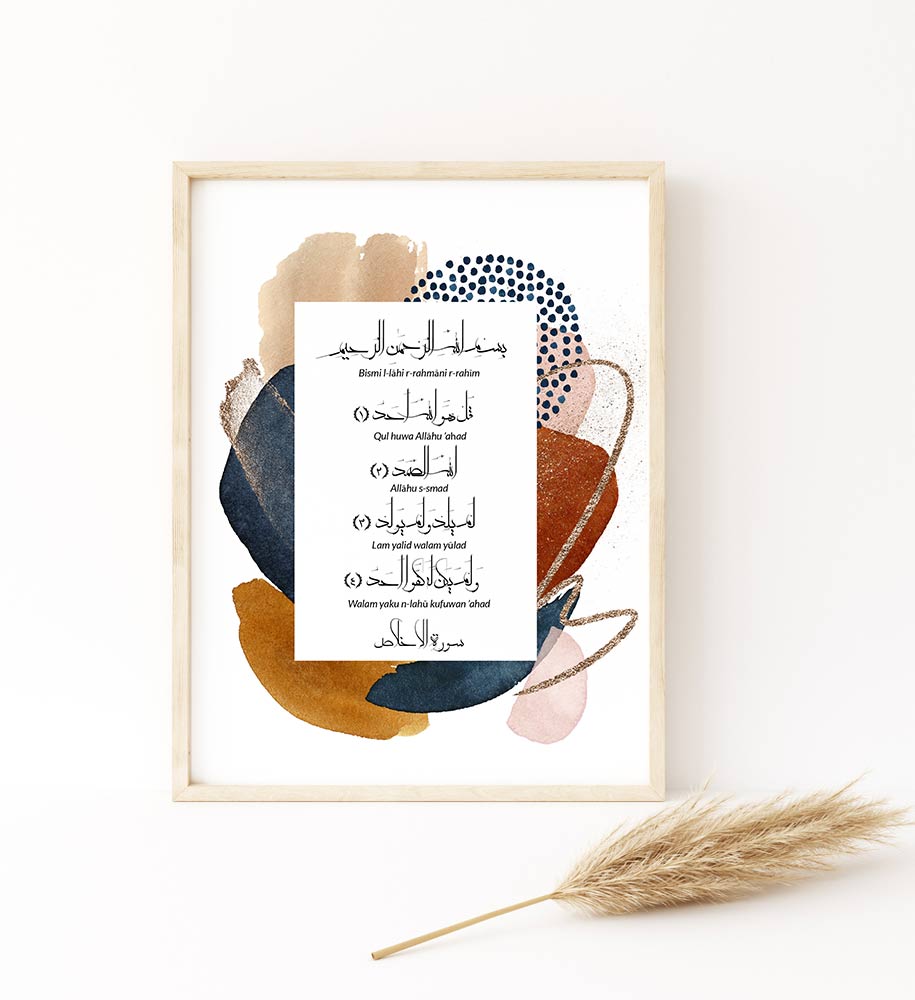 بسم الله الرحمن الرحيم
Bismi l-lāhi r-rahmāni r-rahīm
قل هو الله احد (١)
Qul huwa Allāhu 'ahad
الله الصمد (٢)
Allāhu s-smad
لم يلد ولم يولد (٣)
Lam yalid walam yūlad
ولم يكن له كفوا احد (٤)
Walam yaku n-lahū kufuwan 'ahad
سورة الاخلاص